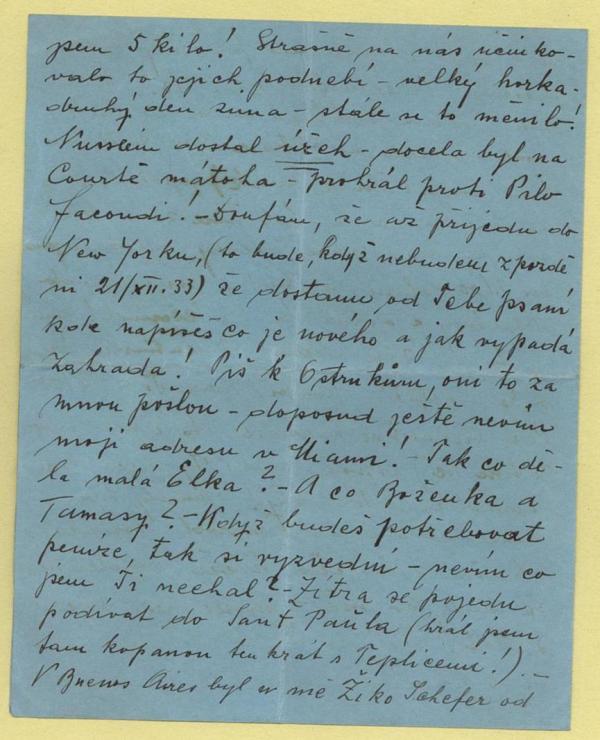 jsem 5 kilo! Strašně na nás účinko-
valo to jejich podnebí - velký horka-
druhý den zima - stále se to měnilo!
Nusslein dostal úžeh - docela byl na
Courtě mátoha - prohrál proti Pilo
Facondi! - Doufám, že až přijedu do
New Yorku, (to bude, když nebudem zpoždě
ni 21/XII. 33) že dostanu od Tebe psaní
kde napíšeš co je nového a jak vypadá
Zahrada! Piš k Ostrukům, oni to za
mnou pošlou - doposud ještě nevím
moji adresu v Miami! - Tak co dě-
la malá Elka? - A co Boženka a
Tamasy? - Když budeš potřebovat
peníze, tak si vyzvedni - nevím co
jsem Ti nechal? - Zítra se pojedu
podívat do Sant Paula (hrál jsem
tam kopanou tenkrát s Teplicemi!). -
V Buenos Aires byl u mě Žiko Schefer od